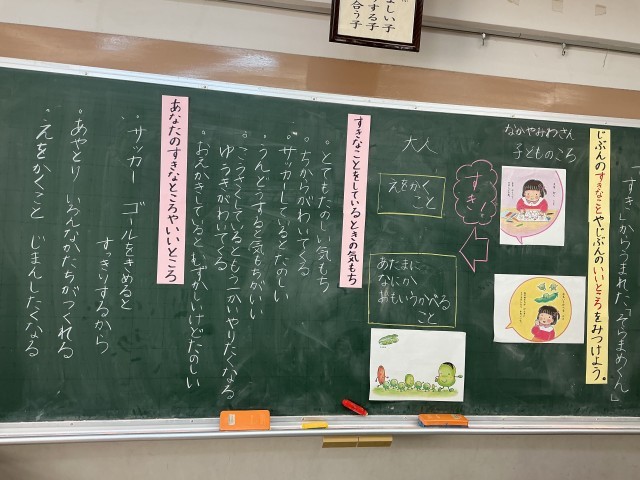 「すき」からうまれた「そらまめくん」
じぶんのすきなことやじぶんのいいところをみつけよう。
なかやみわさん
子どものころ
すき！
大人
えをかく
こと
あたまに
なにか
おもいうかべる
こと
すきなことをしているときの気もち
・とてもたのしい気もち
・ちからがわいてくる
・サッカーしているとたのしい
・うんどうすると気もちがいい
・こうさくしているともう一かいやりたくなる
ゆうきがわいてくる
・おえかきしているとむずかしいけどたのしい
あなたのすきなところやいいところ
・サッカー ゴールをきめると
すっきりするから
・あやとり いろんなかたちがつくれる
・えをかくこと じまんしたくなる
しい子
する子
合う子